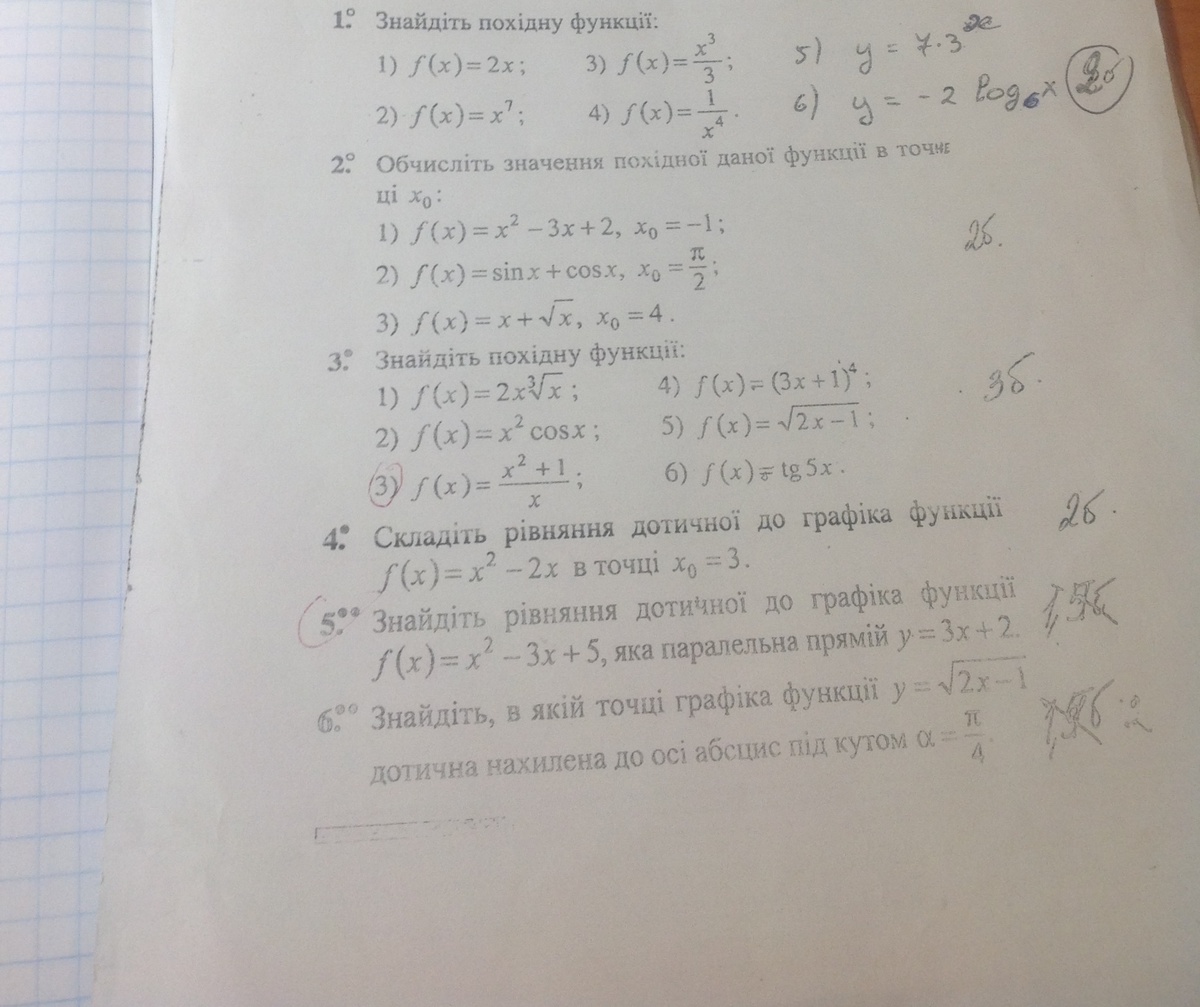 1.° Знайдіть похідну функції:
1) f(x)=2x; 3) f(x)=x³/3; 5) y = 7·3^x
2) f(x)=x⁷; 4) f(x)=1/x⁴. 6) y = -2 log₆x 2б
2.° Обчисліть значення похідної даної функції в точ
ці x₀:
1) f(x)=x²−3x+2, x₀=−1;
2) f(x)=sinx+cosx, x₀=π/2; 2б.
3) f(x)=x+√x, x₀=4.
3.° Знайдіть похідну функції:
1) f(x)=2x∛x; 4) f(x)=(3x+1)⁴; 3б.
2) f(x)=x²cosx; 5) f(x)=√(2x−1);
3) f(x)=(x²+1)/x; 6) f(x)=tg5x.
4.• Складіть рівняння дотичної до графіка функції 2б.
f(x)=x²−2x в точці x₀=3.
5.•• Знайдіть рівняння дотичної до графіка функції
f(x)=x²−3x+5, яка паралельна прямій y=3x+2.
6.•• Знайдіть, в якій точці графіка функції y=√(2x−1)
дотична нахилена до осі абсцис під кутом α=π/4.